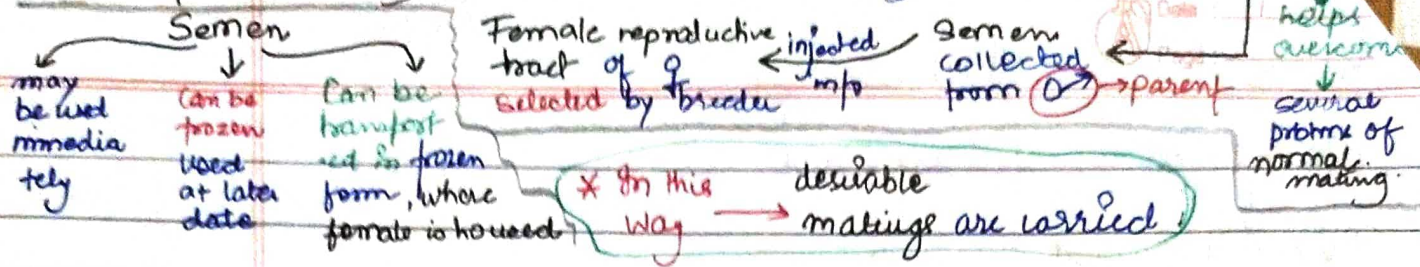 Semen
may
be used
immedia
tely
Can be
frozen
used
at later
date
Can be
transport
ed in frozen
form, where
female is housed
Female reproductive
tract of ♀
selected by breeder
injected
into
Semen
collected
from ♂ → parent
helps
overcome
several
problms of
normal
mating
* In this
way
desirable
matings are carried